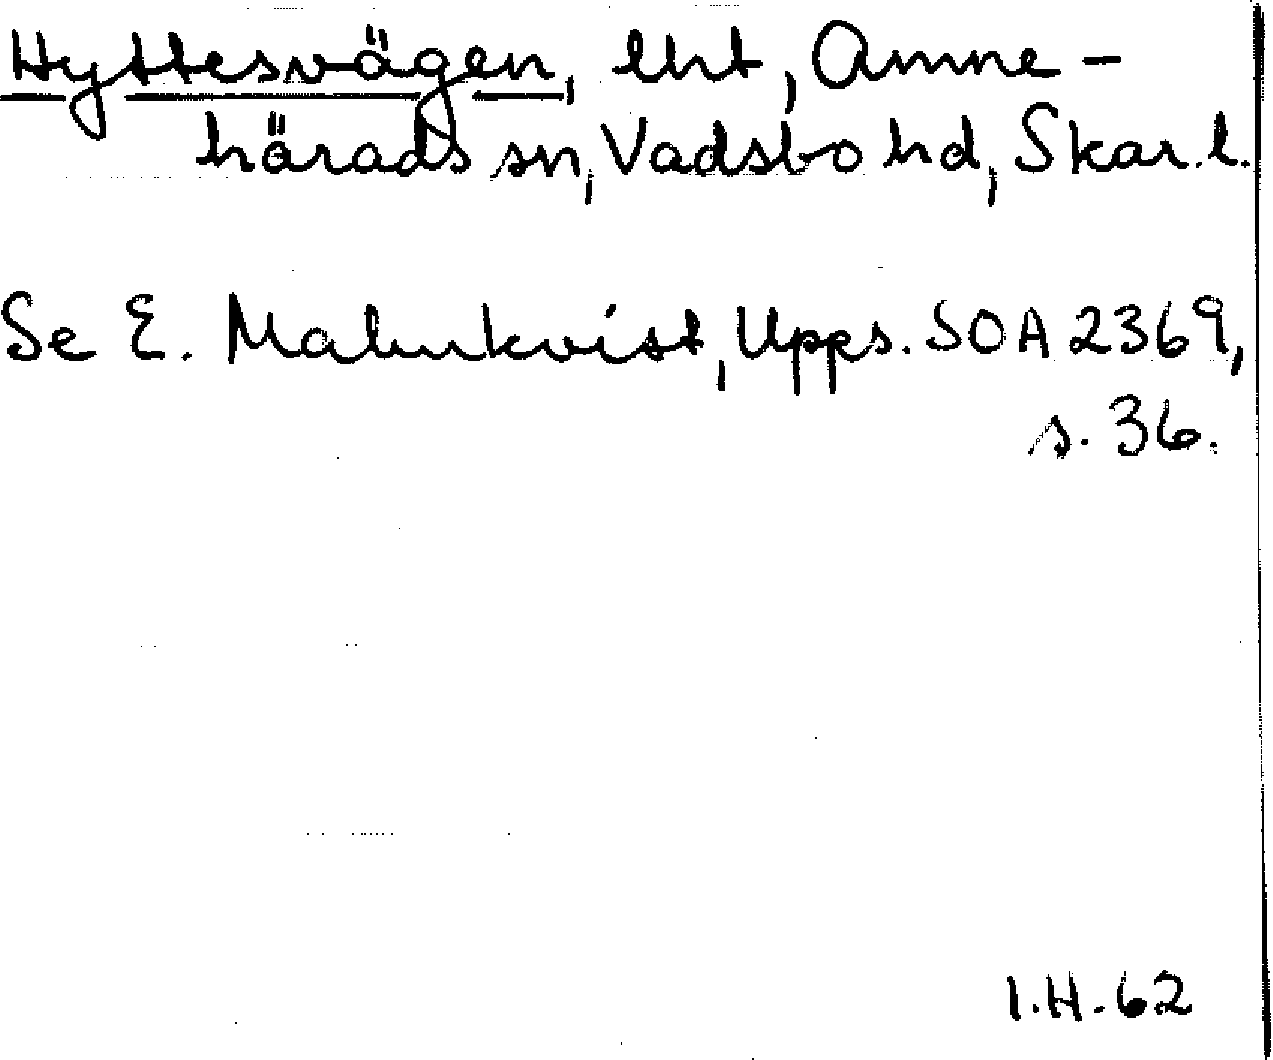 Hyttesvägen, lht, Amne-
härads sn, Vadsbo hd, Skar. l.
Se E. Malmkvist, Upps. SOA 2369,
s. 36.
I.H. 62